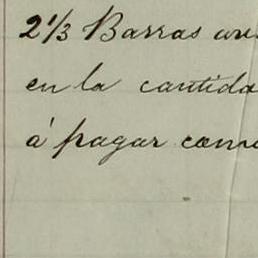 2 1/3 Barras
en la cantida
á pagar com